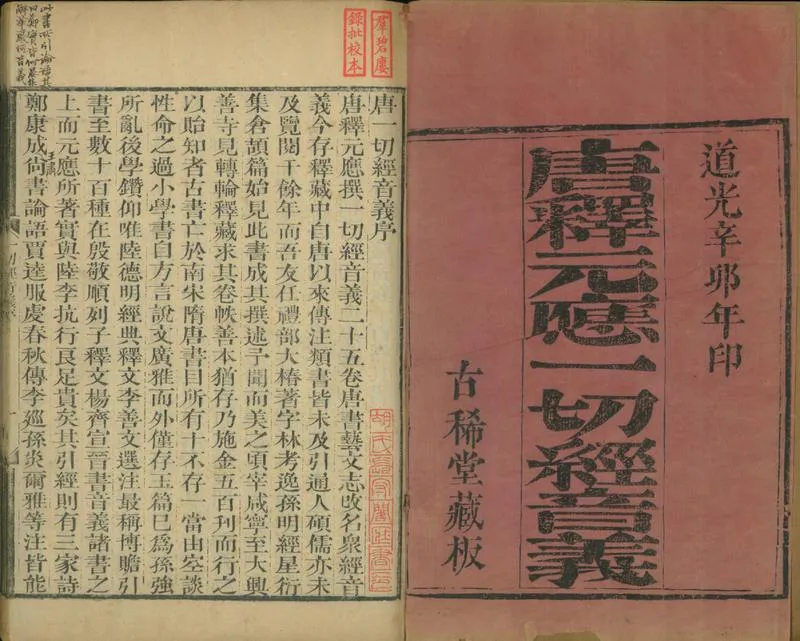 道光辛卯年印
唐釋元應一切經音義
古稀堂藏板
羣碧廔
錄批校本
唐一切經音義序
唐釋元應撰一切經音義二十五卷唐書藝文志改名衆經音
義今存釋藏中自唐以來傳注類書皆未及引通人碩儒亦未
及覽閱干餘年而吾友任禮部大椿著字林考逸孫明經星衍
集倉頡篇始見此書成其撰述予聞而美之頃宰咸寧至大興
善寺見轉輪釋藏求其卷帙善本猶存乃施金五百刋而行之
以貽知者古書亡於南宋隋唐書目所有十不存一當由空談
性命之過小學書自方言說文廣雅而外僅存玉篇已爲孫強
所亂後學鑽仰唯陸德明經典釋文李善文選注最稱博贍引
書至數十百種在殷敬順列子釋文楊齊宣晉書音義諸書之
上而元應所著實與陸李抗行良足貴矣其引經則有三家詩
鄭康成尙書論語賈逵服虔春秋傳李巡孫炎爾雅等注皆能